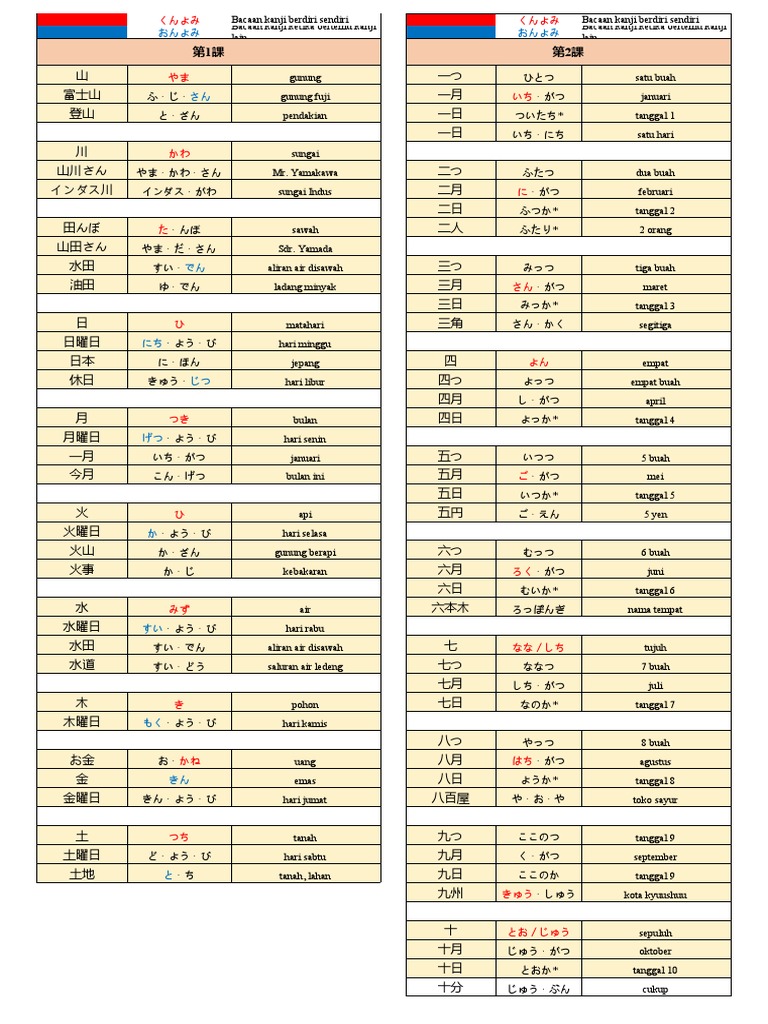 くんよみ Bacaan kanji berdiri sendiri
おんよみ Bacaan kanji ketika bertemu kanji lain
第1課
山 やま gunung
富士山 ふ・じ・さん gunung fuji
登山 と・ざん pendakian
川 かわ sungai
山川さん やま・かわ・さん Mr. Yamakawa
インダス川 インダス・がわ sungai Indus
田んぼ た・んぼ sawah
山田さん やま・だ・さん Sdr. Yamada
水田 すい・でん aliran air disawah
油田 ゆ・でん ladang minyak
日 ひ matahari
日曜日 にち・よう・び hari minggu
日本 に・ほん jepang
休日 きゅう・じつ hari libur
月 つき bulan
月曜日 げつ・よう・び hari senin
一月 いち・がつ januari
今月 こん・げつ bulan ini
火 ひ api
火曜日 か・よう・び hari selasa
火山 か・ざん gunung berapi
火事 か・じ kebakaran
水 みず air
水曜日 すい・よう・び hari rabu
水田 すい・でん aliran air disawah
水道 すい・どう saluran air ledeng
木 き pohon
木曜日 もく・よう・び hari kamis
お金 お・かね uang
金 きん emas
金曜日 きん・よう・び hari jumat
土 つち tanah
土曜日 ど・よう・び hari sabtu
土地 と・ち tanah, lahan
くんよみ Bacaan kanji berdiri sendiri
おんよみ Bacaan kanji ketika bertemu kanji lain
第2課
一つ ひとつ satu buah
一月 いち・がつ januari
一日 ついたち* tanggal 1
一日 いち・にち satu hari
二つ ふたつ dua buah
二月 に・がつ februari
二日 ふつか* tanggal 2
二人 ふたり* 2 orang
三つ みっつ tiga buah
三月 さん・がつ maret
三日 みっか* tanggal 3
三角 さん・かく segitiga
四 よん empat
四つ よっつ empat buah
四月 し・がつ april
四日 よっか* tanggal 4
五つ いつつ 5 buah
五月 ご・がつ mei
五日 いつか* tanggal 5
五円 ご・えん 5 yen
六つ むっつ 6 buah
六月 ろく・がつ juni
六日 むいか* tanggal 6
六本木 ろっぽんぎ nama tempat
七 なな / しち tujuh
七つ ななつ 7 buah
七月 しち・がつ juli
七日 なのか* tanggal 7
八つ やっつ 8 buah
八月 はち・がつ agustus
八日 ようか* tanggal 8
八百屋 や・お・や toko sayur
九つ ここのつ tanggal 9
九月 く・がつ september
九日 ここのか tanggal 9
九州 きゅう・しゅう kota kyunshuu
十 とお / じゅう sepuluh
十月 じゅう・がつ oktober
十日 とおか* tanggal 10
十分 じゅう・ぶん cukup